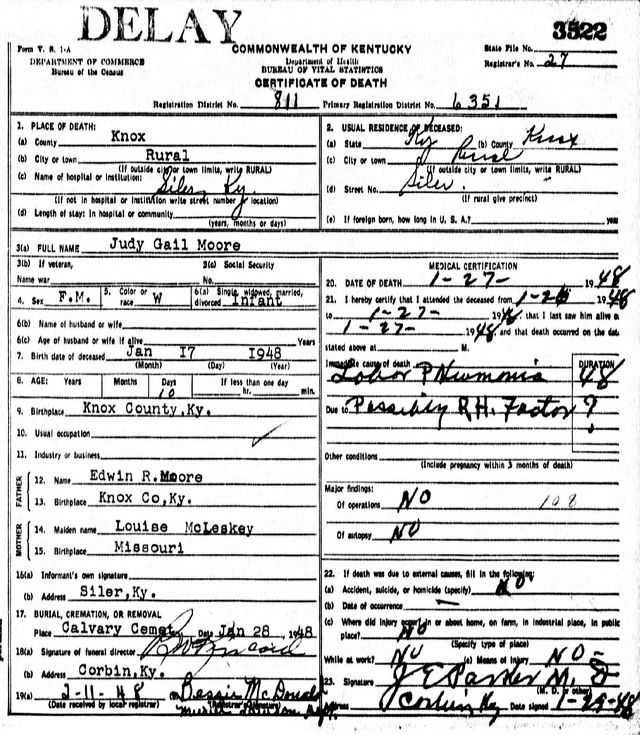 DELAY
3522
Form V. S. 1-A
COMMONWEALTH OF KENTUCKY
State File No.
DEPARTMENT OF COMMERCE
Department of Health
Registrar's No. 27
Bureau of the Census
BUREAU OF VITAL STATISTICS
CERTIFICATE OF DEATH
Registration District No. 811 Primary Registration District No. 6351
1. PLACE OF DEATH:
(a) County Knox
(b) City or town Rural
(If outside city or town limits, write RURAL)
(c) Name of hospital or institution:
Siler, Ky.
(If not in hospital or institution write street number or location)
(d) Length of stay: In hospital or community
(years, months or days)
2. USUAL RESIDENCE OF DECEASED:
(a) State Ky (b) County Knox
(c) City or town Rural
(If outside city or town limits, write RURAL)
(d) Street No. Siler.
(If rural give precinct)
(e) If foreign born, how long in U. S. A.? year
3(a) FULL NAME Judy Gail Moore
3(b) If veteran, 3(c) Social Security
Name war No.
4. Sex F.M. 5. Color or race W 6(a) Single, widowed, married, divorced Infant
6(b) Name of husband or wife
6(c) Age of husband or wife if alive Years
7. Birth date of deceased Jan 17 1948
(Month) (Day) (Year)
8. AGE: Years Months Days If less than one day
10 hr. min.
9. Birthplace Knox County, Ky.
10. Usual occupation
11. Industry or business
FATHER
12. Name Edwin R. Moore
13. Birthplace Knox Co, Ky.
MOTHER
14. Maiden name Louise McLeskey
15. Birthplace Missouri
16(a) Informant's own signature
(b) Address Siler, Ky.
17. BURIAL, CREMATION, OR REMOVAL
Place Calvary Cemet Date Jan 28 1948
18(a) Signature of funeral director
(b) Address Corbin, Ky.
19(a) 2-11-48 Bessie McDonald
(Date received by local registrar) (Registrar's Signature)
MEDICAL CERTIFICATION
20. DATE OF DEATH 1-27- 1948
21. I hereby certify that I attended the deceased from 1-26 1948
to 1-27- 1948, that I last saw him alive o
1-27- 1948, and that death occurred on the date
stated above at M.
Immediate cause of death DURATION
Lobar Pneumonia 48
Due to Possibly R.H. Factor ?
Other conditions
(Include pregnancy within 3 months of death)
Major findings:
Of operations NO 108
Of autopsy NO
22. If death was due to external causes, fill in the following:
(a) Accident, suicide, or homicide (specify) NO
(b) Date of occurrence
(c) Where did injury occur in or about home, on farm, in industrial place, in public
place? NO
(Specify type of place)
While at work? NO (e) Means of injury NO-
23. Signature J E Parker M. D
(M. D. or other)
Address Corbin Ky Date signed 1-29-48